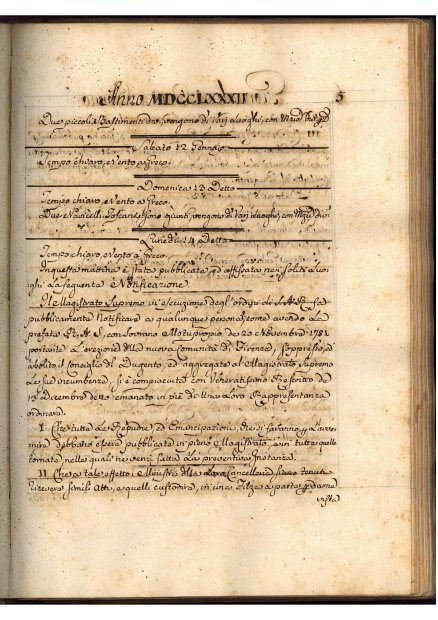 Anno MDCCLXXXII 5
Due piccoli Bastimenti diversi vengono di Varj Luoghi, con
Sabato 12 Gennaio
Tempo chiaro, e Vento a Greco.
Domenica 13 Detto
Tempo chiaro, e Vento a Greco.
Due Navicelli Toscani sono giunti vengono di Varj Luoghi con
Lunedì 14 Detto
Tempo chiaro, e Vento a Greco.
In questa mattina è stata pubblicata ed affissata nei soliti Luo-
ghi La seguente Notificazione
Il Magistrato Supremo in esecuzione degl'ordini di S. A. R. fa
pubblicamente Notificare a qualunque persona, come avendo La
prefata R. A. S., con Sovrano Motuproprio de 20 Novembre 1781.
portante L'erezione della nuova Comunità di Firenze, soppresso, ed
abolito il Consiglio del Dugento, ed aggregate al Magistrato Supremo
Le sue incumbenze, si è compiaciuta con Veneratissimo Rescritto de
19 Dicembre detto emanato in piè di Una Loro Rappresentanza
ordinare.
I. Che tutte Le Repudie, ed Emancipazioni che si faranno per L'avve-
nire debbano essere pubblicate in pieno Magistrato in tutte quelle
tornate nelle quali ne verrà fatta La preventiva Instanza.
II. Che a tale effetto i Ministri della Cancelleria siano tenuti
ricevere simili Atti, e quelli custodire in una Filza a parte per darne